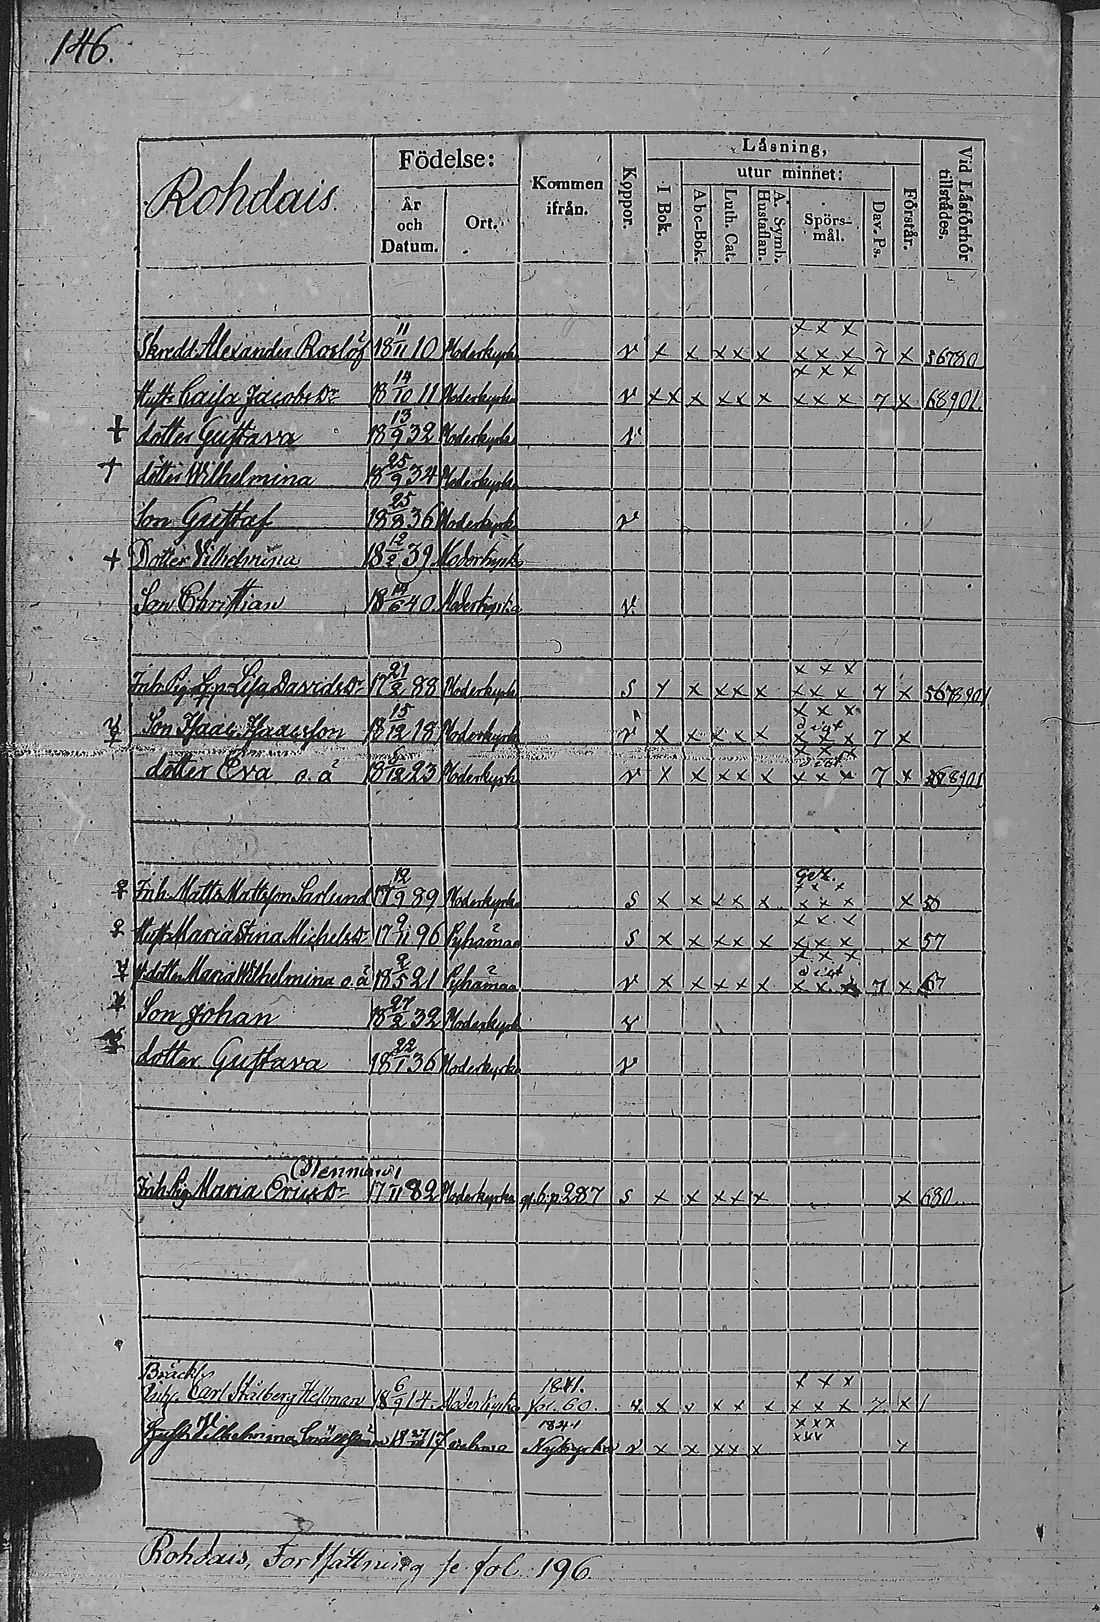 146.
Rohdais.
Födelse:
År och Datum.
Ort.
Kommen ifrån.
Koppor.
Läsning,
I Bok.
utur minnet:
Abc-Bok.
Luth. Cat.
A. Symb. Hustaflan.
Spörs-mål.
Dav. Ps.
Förstår.
Vid Läsförhör tillstädes.
Skredd. Alexander Roslöf 18 11/11 10 Moderkyrka v x x xx x xxx xxx 7 x 56780
Hust. Caisa Jacobsdr 18 14/10 11 Moderkyrka v xx x xxx x xxx xxx 7 x 68901
dotter Gustava 18 13/9 32 Moderkyrka v
dotter Wilhelmina 18 25/9 34 Moderkyrka
Son Gustaf 18 25/8 36 Moderkyrka v
Dotter Vilhelmina 18 12/2 39 Moderkyrka
Son Christian 18 /6 40 Moderkyrka v.
Lisa Davidsdr 17 21/2 88 Moderkyrka s x xx x xxx xxx 7 x 5678901
Son Isaac Isaacsson 18 15/12 18 Moderkyrka v x x xxx x xxx 7 x
dotter Eva o. ä 18 6/12 23 Moderkyrka v x x xxx x xxx xxx 7 x 8901
Inh. Matts Mattsson Sarlund 17 12/9 89 Moderkyrka s x x xxx x xxx xxx x
Hust. Maria Stina Michelsdr 17 9/11 96 Pyhämaa s x x xxx x xxx xxx x 57
dotter Maria Wilhelmina o. ä 18 2/5 21 Pyhämaa v x x xxx x xxx 7 x 67
Son Johan 18 27/2 32 Moderkyrk v
dotter Gustava 18 22/1 36 Moderkyrka v
Inh. Pig. Maria Ericsdr 17 /11 82 Moderkyrka p. 287 s x x xx x x 680
Carl Stålberg Hellman 18 6/9 14. Moderkyrka 1841. fol. 60 v. x v xx x xxx xxx 7. x 1
Hust. Vilhelmina 18 27/ 17 1841 Nykyrka v x x xx x xxx xxx x
Rohdais, Fortsättning se fol. 196.